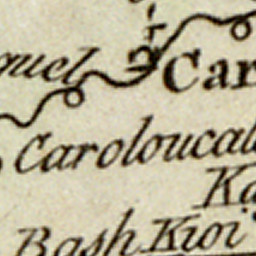 quel
Car
Caroloucal
Ka
Bash Kioi